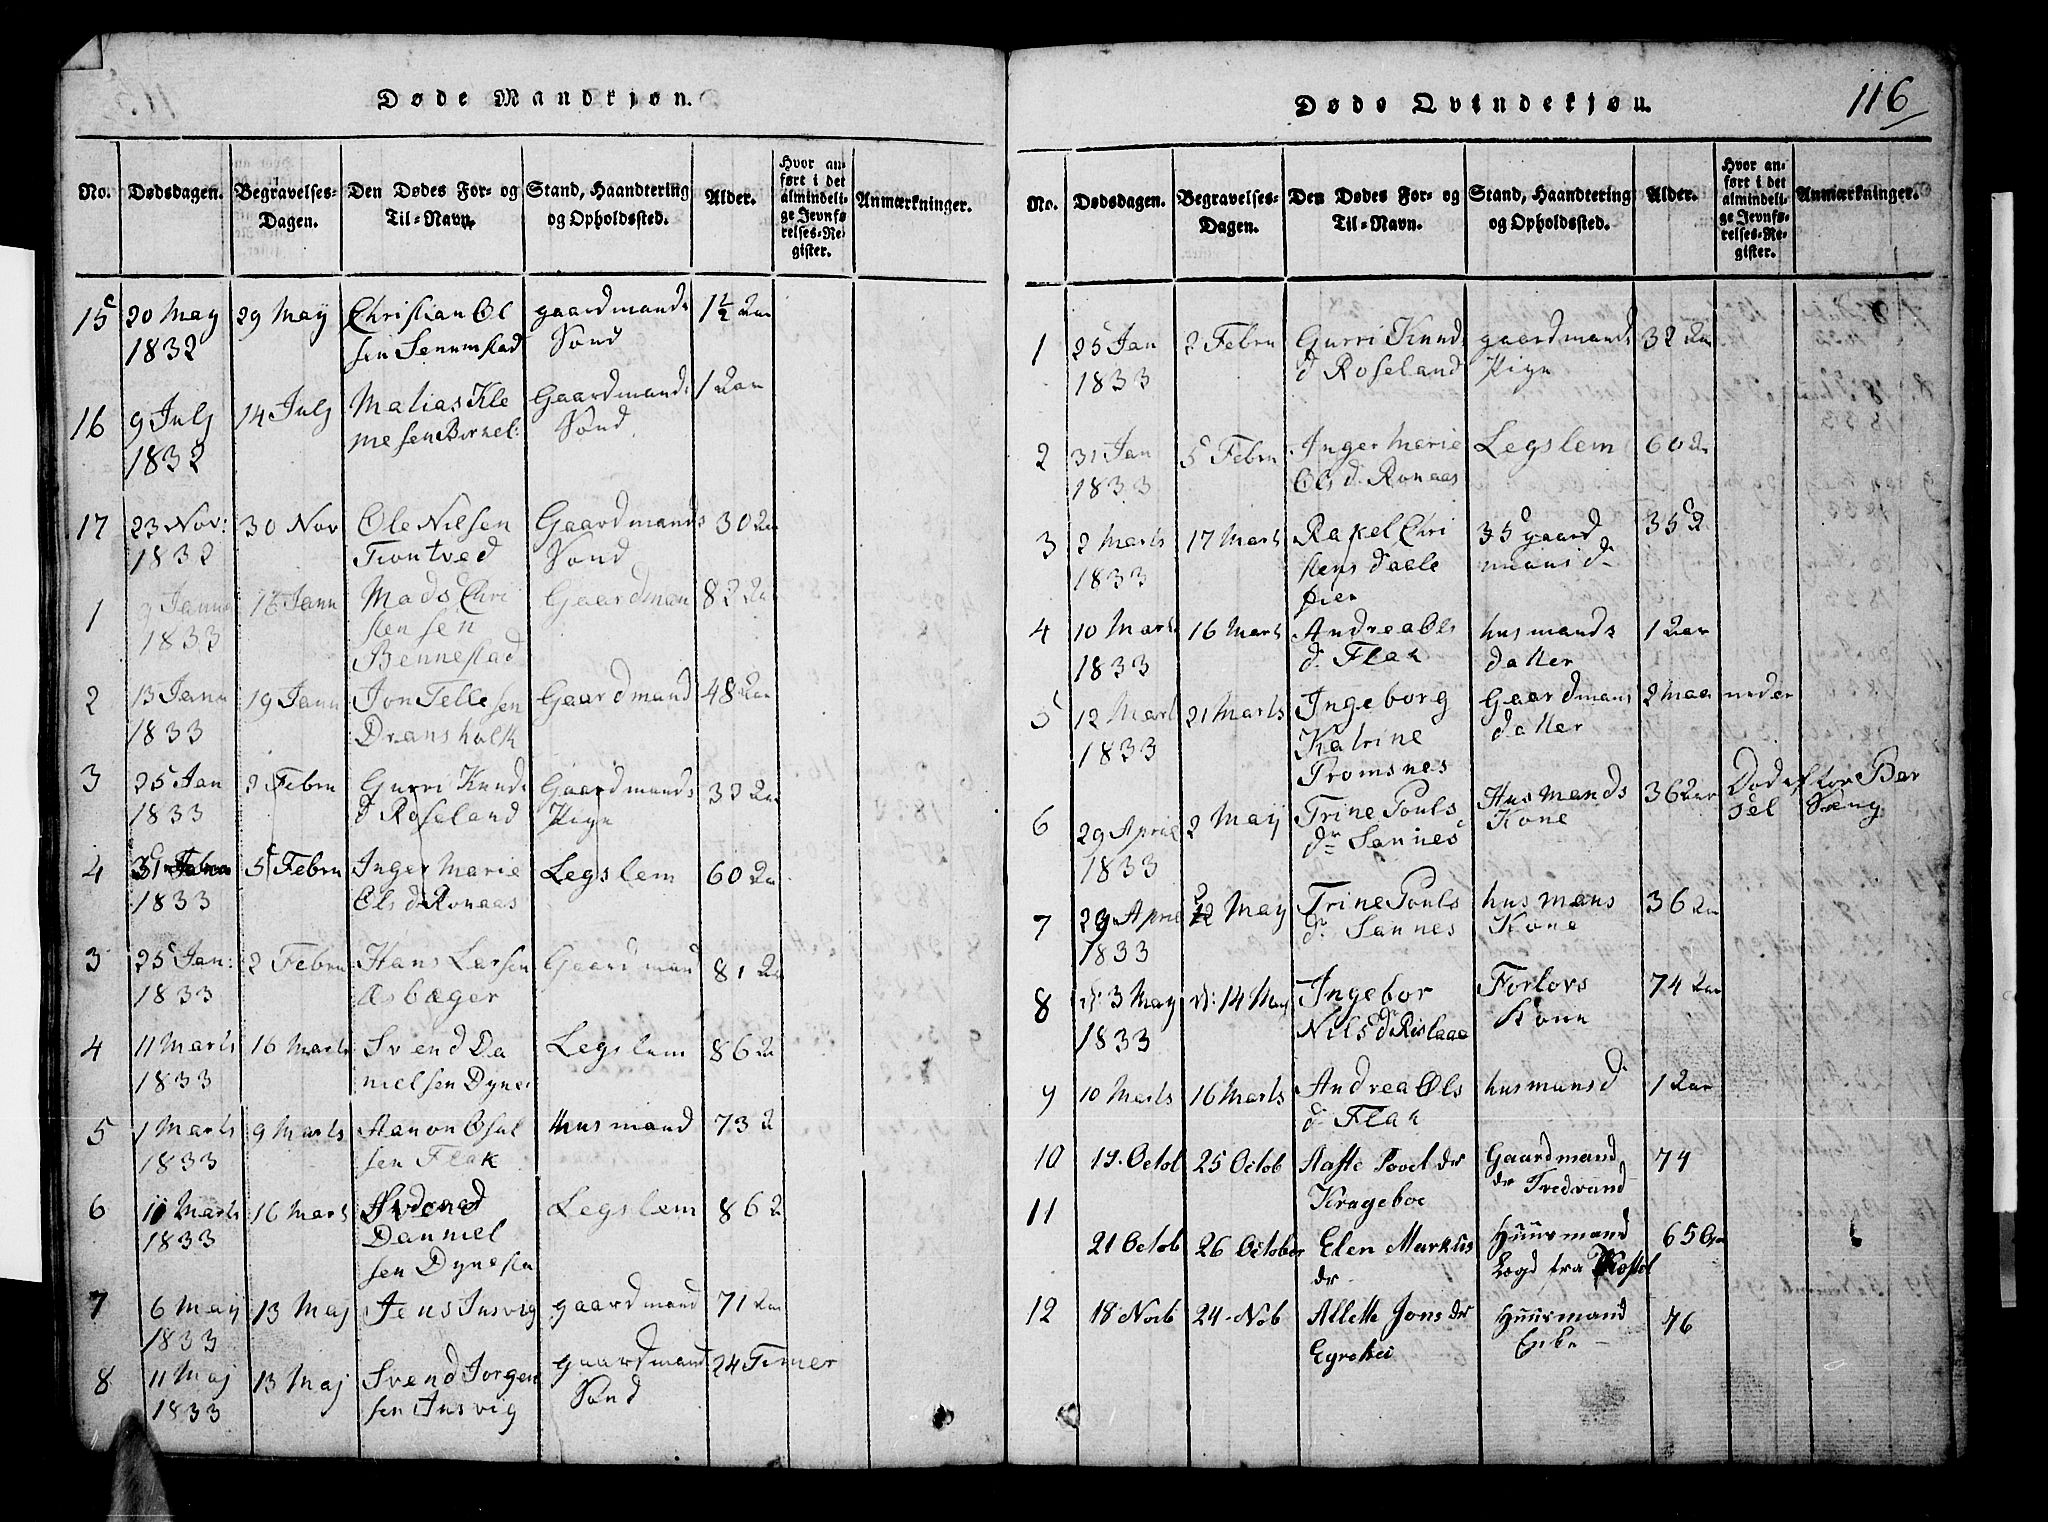 Døde Mandkjøn.
No. Dødsdagen. Begravelses-Dagen. Den Dødes For- og Til-Navn. Stand, Haandtering og Opholdssted. Alder. Hvor anført i det almindelige Jevnførelses-Register. Anmærkninger.
15 20 May 29 May Christian Ol gaardmands 1½ Aar
1832 sen Senumstad Sond
16 9 July 14 July Matias Kle Gaardmands 1 Aar
1832 mesen Birkel: Sønd
17 23 Nov: 30 Nov Ole Nilsen Gaardmands 30 Aar
1832 Trontved Sond
1 Janu 16 Janu Mads Chri Gaardman 82 Aar
1833 stensen
Bennestad
2 15 Janu 19 Janu Jon Tellesen Gaardmand 48 Aar
1833 Dransholt
3 25 Jan 2 Febru Gurri Knuds Gaardmands 32 Aar
1833 d Roseland Pige
4 31 5 Febru Inger Marie Legslem 60 Aar
1833 Ols d Ronaas
3 25 Jan: 2 Febru Hans Larsen Gaardmand 81 Aar
1833 Æsbæger
4 11 Marts 16 Marts Svend Da Legslem 86 A
1833 nielsen Dynes
5 1 Marts 9 Marts Aanon Osul Husmand 73 A
1833 sen Flak
6 11 Marts 16 Mart Svend Legslem 86 A
1833 Danniel
sen Dynesen
7 6 May 13 Maj Jens Insvig gaardmand 71 Aar
1833
8 11 Maj 13 Maj Svend Jorgen gaardmands 24 Timer
1833 sen Insvig Sønd
Døde Qvindekjøn.
116
No. Dødsdagen. Begravelses-Dagen. Den Dødes For- og Til-Navn. Stand, Haandtering og Opholdssted. Alder. Hvor anført i det almindelige Jevnførelses-Register. Anmærkninger.
1 25 Jan 2 Febru Gurri Knud gaardmands 32 Aar
1833 d Roseland Pige
2 31 Jan 5 Febru Inger Marie Legslem 60 Aar
1833 Ols d. Ronaas
3 2 Marts 17 Mart Rakel Chri 35 gaard 35 A
1833 stens daale mans d
øien
4 10 Mart 16 Marts Andrea Ols husmands 1 Aar
1833 d. Flak datter
5 12 Mart 21 Marts Ingeborg Gaardmans 2 Maaneder
1833 Katrine datter
Tromsnes
6 29 April 2 May Trine Pouls Husmands 36 Aar Død efter Bar
1833 dr Sannes Kone sel Sæng
7 29 April 2 May Trine Pouls husmans 36 Aar
1833 d. Sannes Kone
8 d: 3 May d: 14 May Ingebor Forlovs 74 Aar
1833 Nils d Rislaae Kone
9 10 Marts 16 Marts Andrea Øls husmans d 1 Aar
d. Flak
10 17. Octob 25 Octob Aaste Povel dr Gaardmand 74
Krageboe dr Tvedvand
11 21 Octob 26 October Elen Markus Huusmand 65 Aar
dr Lægd fra
12 18 Novb 24 Nob Allette Jons dr Huusmand 76
Eyrehei Enke